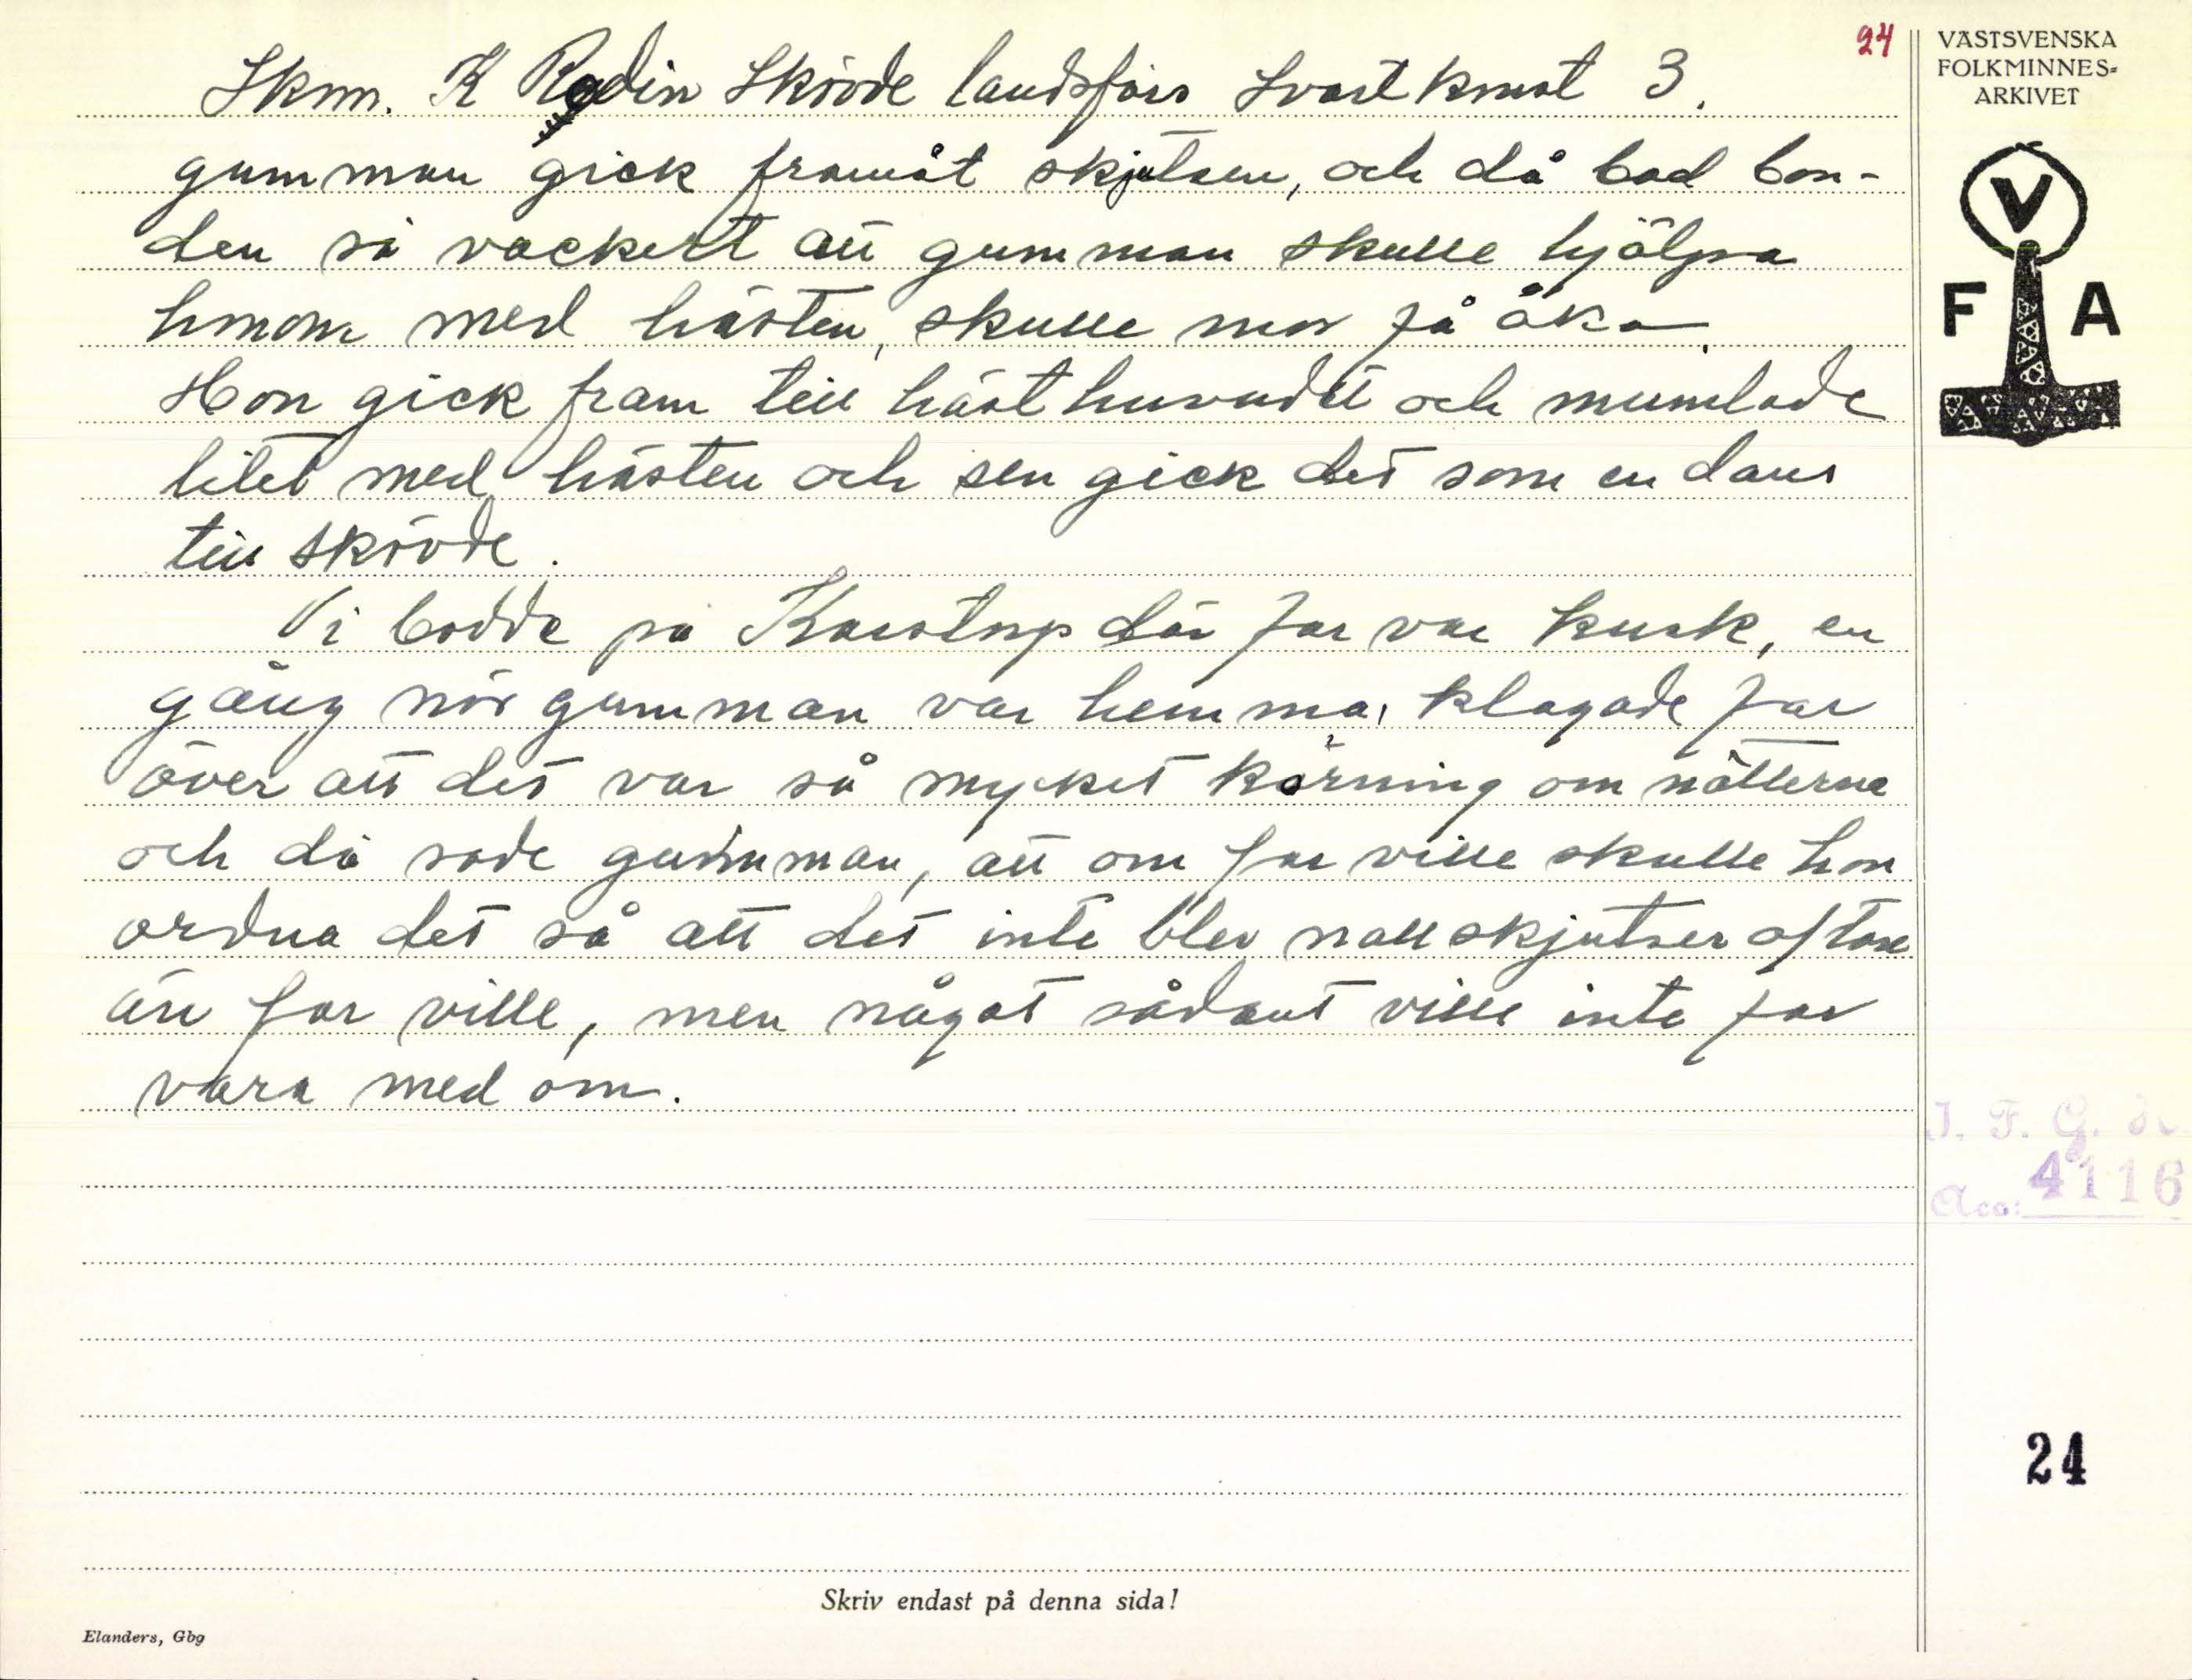 24
Skm. K Rodin Skövde landsförs Svartkonst 3.
gumman gick framåt skjutsen, och då bad bon-
den så vackert att gumman skulle hjälpa
honom med hästen, skulle mor få åka.
Hon gick fram till hästhuvudet och mumlade
litet med hästen och sen gick det som en dans
till Skövde.
Vi bodde på Karstorp där far var kusk, en
gång när gumman var hemma, klagade far
över att det var så mycket körning om nätterna
och då sade gumman, att om far ville skulle hon
ordna det så att det inte blev nattskjutser oftare
än far ville, men något sådant ville inte far
vara med om.
Skriv endast på denna sida!
Elanders, Gbg
VÄSTSVENSKA
FOLKMINNES=
ARKIVET
V
F A
I. F. G.
Acc: 4116
24